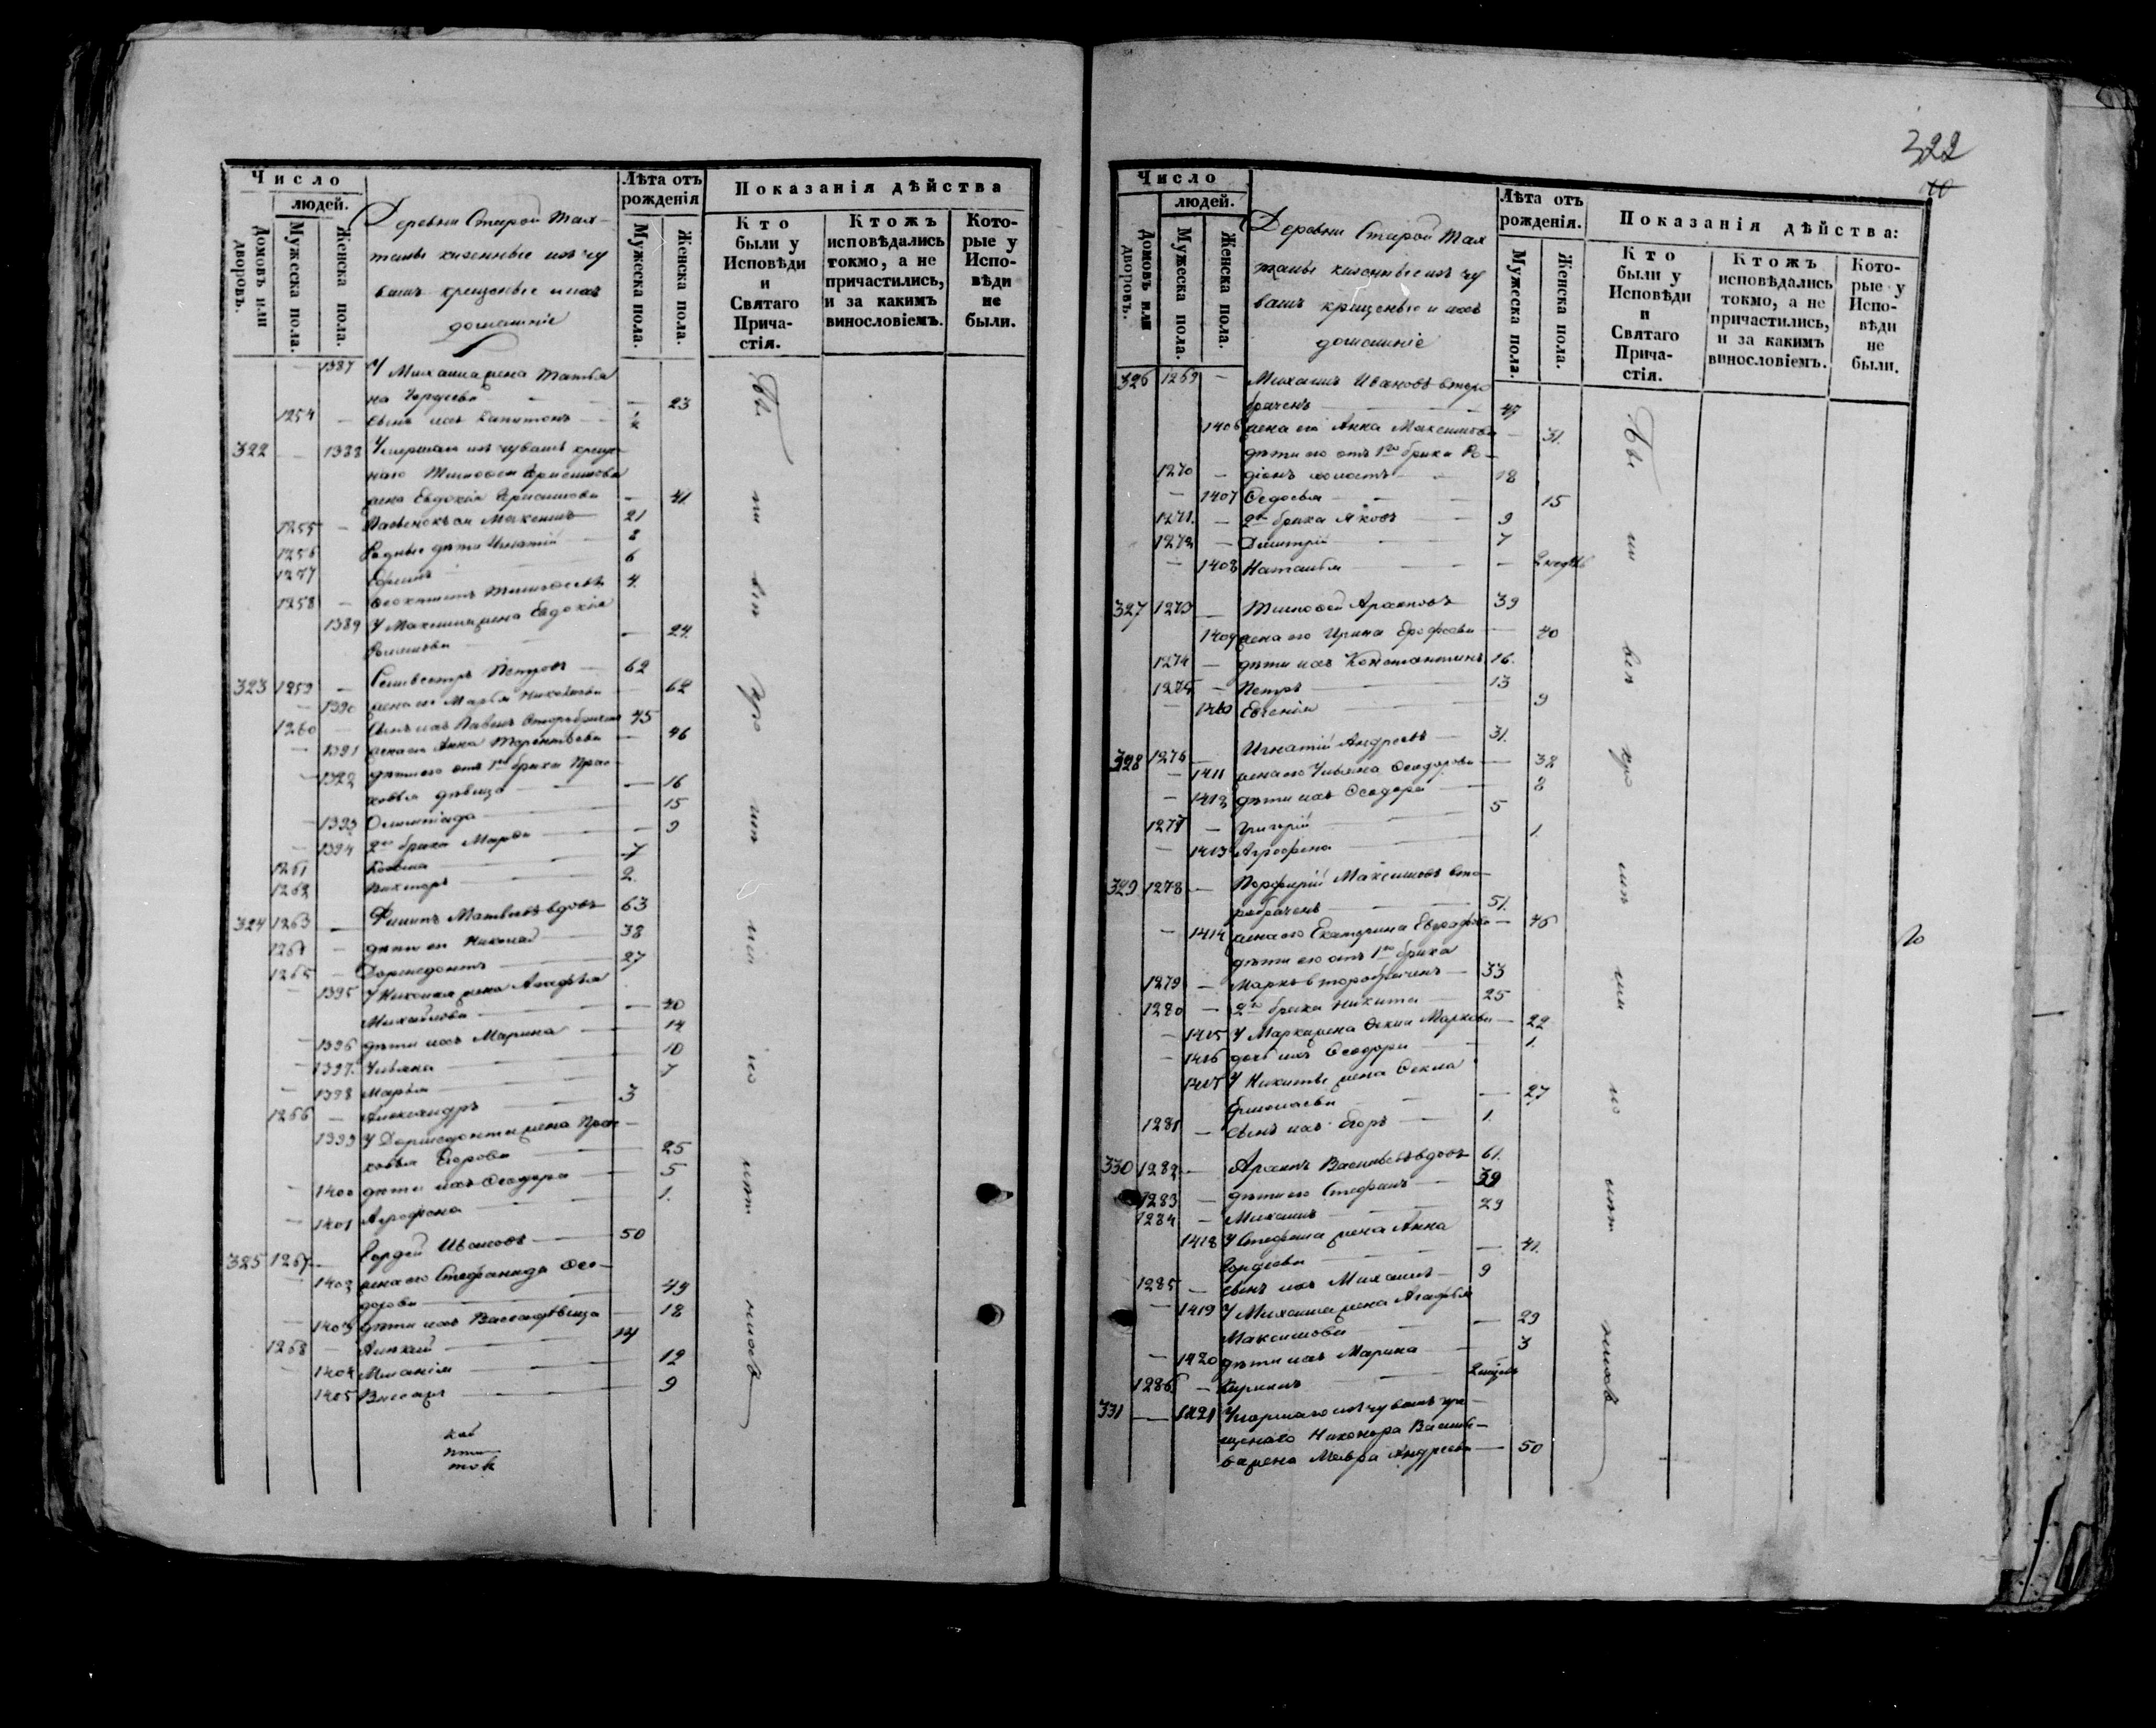 322
Число
людей.
Домовъ или дворовъ.
Мужеска пола.
Женска пола.
Деревни Старой Тах-
талы казенные изъ чу
вашъ крещеные и ихъ
домашніе
Лѣта отъ рожденія
Мужеска пола.
Женска пола.
Показанія дѣйства
Кто были у Исповѣди и Святаго Прича-стія.
Ктожъ исповѣдались токмо, а не причастились, и за какимъ винословіемъ.
Кото-рые у Испо-вѣди не были.
1387 У Михаила жена Татья
на Гордѣева — 23
1254 — сынъ ихъ Капитонъ ½
322 — 1388 Умершаго изъ чувашъ креще-
наго Тимофея
жена Евдокія — 41.
1255 — Максимъ 21
1256 Родные дѣти Игнатій 8
1257 Ефимъ 6
1258 — Феоктистъ Тимофеевъ 4.
1389 У Максима жена Евдокія
— 24.
323 1259 — Селивестръ Петровъ 62
— 1390 жена его Марья Николаева — 62
1260 — сынъ ихъ Павелъ второбрачный 45
— 1391 жена его Анна Терентьева — 46
— 1392 дѣти его отъ 1го брака Прас-
ковья дѣвица — 16
— 1393 Олимпіада 15
— 1394 2го брака Марфа — 9
1261 Козьма 7
1262 Викторъ 2.
324 1263 — Филипъ Матвѣевъ вдовъ 63
1264 — дѣти его Николай 38
1265 — Дормедонтъ 27
1395 У Николая жена Агафья
Михайлова — 40
— 1396 дѣти ихъ Марина — 14
— 1397. Ульяна 10
— 1398 Марья 7
1266 — Александръ 3
1399 У Дормедонта жена Прас-
ковья Егорова 25
— 1400 дѣти ихъ Феодора — 5
— 1401 Агрофена 1.
325 1267 — Гордей Ивановъ 50
— 1402 жена его Стефанида Фео-
дорова 49
— 1403 дѣти ихъ Васса дѣвица — 18
1268 — Алексей 14
— 1404 Меланія 12
1405 Васса 9
Число
людей.
Домовъ или дворовъ.
Мужеска пола.
Женска пола.
Деревни Старой Тах
талы казенные изъ чу
вашъ крещеные и ихъ
домашніе
Лѣта отъ рожденія.
Мужеска пола.
Женска пола.
Показанія дѣйства:
Кто были у Исповѣди и Святаго Прича-стія.
Ктожъ исповѣдались токмо, а не причастились, и за какимъ винословіемъ.
Кото-рые у Испо-вѣди не были.
326 1269 — Михаилъ Ивановъ второ
браченъ 47
1406 жена его Анна Максимова — 31.
дѣти его отъ 1го брака Ро-
1270 — діонъ холостъ 18
— 1407 Федосья 15
1271. — 2го брака Яковъ 9
1272 — Димитрій 7
— 1408 Наталья —
327 1273 — Тимофей Архиповъ 39
1409 жена его Ирина Ерофеева — 40
1274 — дѣти ихъ Константинъ 16.
1275 — Петръ 13
— 1410 Евгенія 9
328 1276 — Игнатій Андреевъ 31.
— 1411 жена его Ульяна Феодорова — 32
— 1412 дѣти ихъ Феодора 8
1277 — Григорій 5
— 1413 Агрофена 1.
329 1278 — Порфирій Максимовъ вто-
робраченъ 51.
— 1414 жена его Екатерина — 46
дѣти его отъ 1го брака
1279 — Маркъ второбраченъ 33
1280 — 2го брака Никита 25
— 1415 У Марка жена Фекла Маркова — 22
— 1416 дочь ихъ Феодора 1.
1417 У Никиты жена Фекла
Ермолаева — 27
1281 — сынъ ихъ Егоръ 1.
330 1282 — Архипъ Васильевъ вдовъ 61.
1283 — дѣти его Стефанъ 39
1284 — Михаилъ 29
1418 У Стефана жена Анна
Гордѣева — 41.
1285 — сынъ ихъ Михаилъ 9
— 1419 У Михаила жена Агафья
Максимова — 29
— 1420 дѣти ихъ Марина 3
1286 — Кирилъ
331 — 1421 Умершаго изъ чувашъ кре-
щенаго Никонора Василь-
ва жена Мавра Андреева — 50